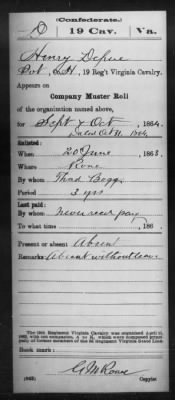 (Confederate.)
D 19 Cav. Va.
Henry Depue
Pvt, Co. H, 19 Reg't Virginia Cavalry.
Appears on
Company Muster Roll
of the organization named above,
for Sept & Oct, 1864.
Dated Oct 31, 1864.
Enlisted:
When 20 June, 1863.
Where Roane
By whom Thad Beggs
Period 3 yrs
Last paid:
By whom Never recd pay
To what time , 186 .
Present or absent Absent
Remarks: Absent without leave
The 19th Regiment Virginia Cavalry was organized April 11,
1863, with ten companies, A to K, which were composed
Book mark:
(642) Copyist.